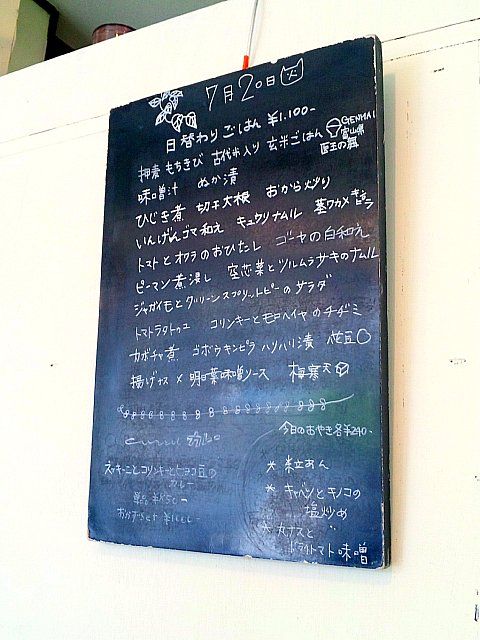 7月20日(火)
日替わりごはん ¥1,100-
押麦 もちきび 古代米入り 玄米ごはん GENMAI 富山県
味噌汁 ぬか漬
ひじき煮 切干大根 おから炒り
いんげんゴマ和え キュウリナムル 茎ワカメキンピラ
トマトとオクラのおひたし ゴーヤの白和え
ピーマン煮浸し 空芯菜とツルムラサキのナムル
ジャガイモとグリーンスプリットピーのサラダ
トマトラタトゥユ コリンキーとモロヘイヤのチヂミ
カボチャ煮 ゴボウキンピラ ハリハリ漬 花豆
揚げナス × 明日葉味噌ソース 梅寒天
今日のおやき各¥240-
ズッキーニとコリンキーとヒヨコ豆の
カレー
単品
おかずset
* 粒あん
* キャベツとキノコの
塩炒め
* 丸ナスと
ドライトマト味噌